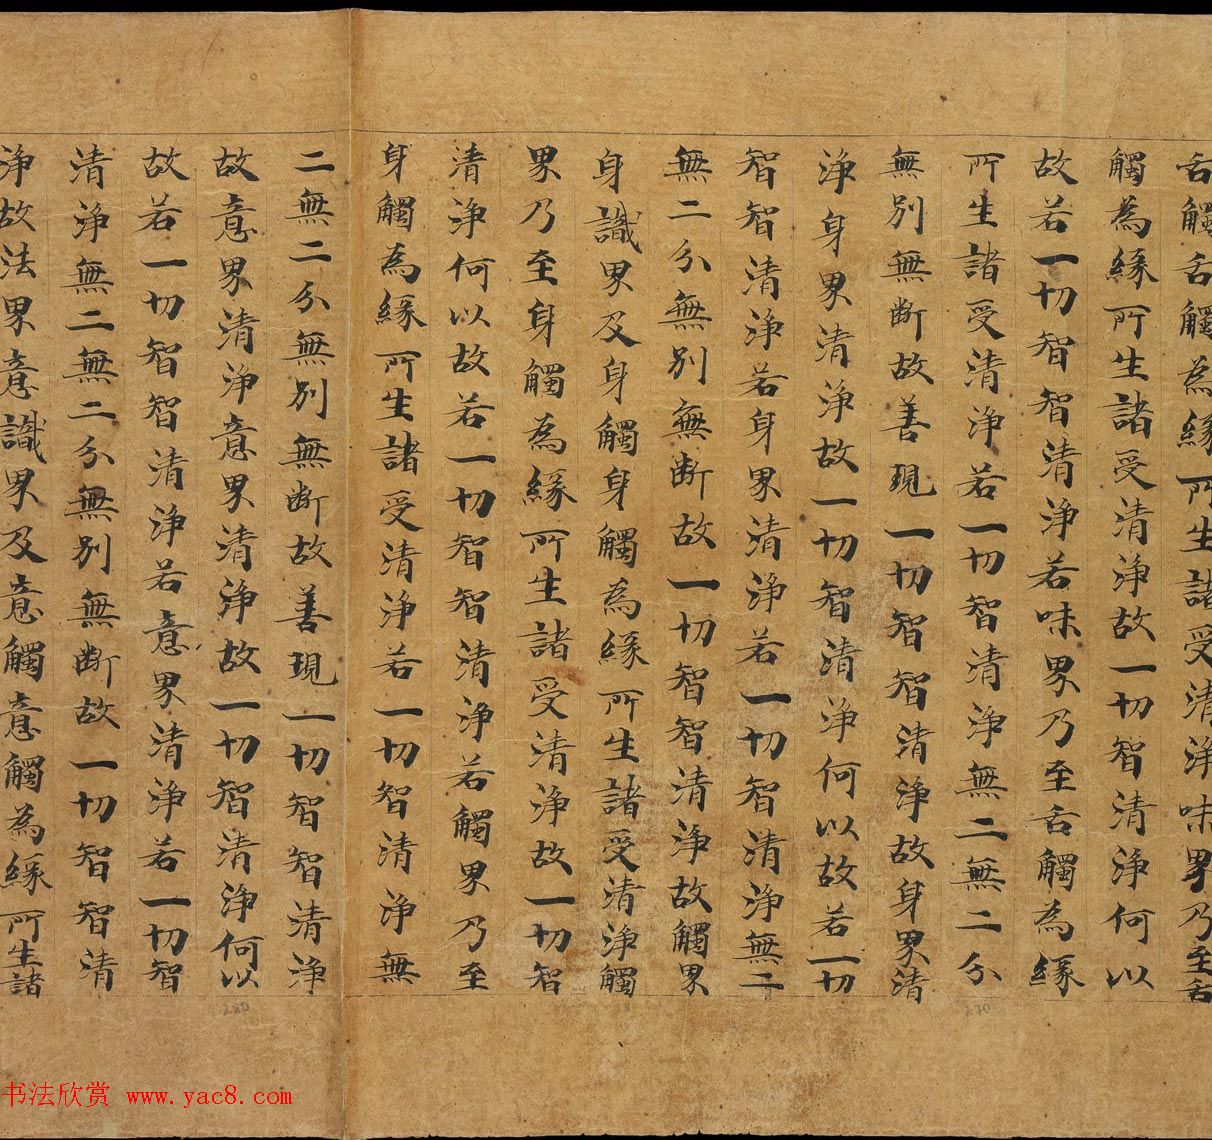 舌觸舌觸為緣所生諸受清淨味界乃至舌
觸為緣所生諸受清淨故一切智清淨何以
故若一切智智清淨若味界乃至舌觸為緣
所生諸受清淨若一切智清淨無二無二分
無別無断故善現一切智智清淨故身界清
淨身界清淨故一切智清淨何以故若一切
智智清淨若身界清淨若一切智清淨無二
無二分無別無断故一切智智清淨故觸界
身識界及身觸身觸為緣所生諸受清淨觸
界乃至身觸為緣所生諸受清淨故一切智
清淨何以故若一切智智清淨若觸界乃至
身觸為緣所生諸受清淨若一切智清淨無
二無二分無別無断故善現一切智智清淨
故意界清淨意界清淨故一切智清淨何以
故若一切智智清淨若意界清淨若一切智
清淨無二無二分無別無断故一切智智清
淨故法界意識界及意觸意觸為緣所生諸
270
280
书法欣赏 www.yac8.com